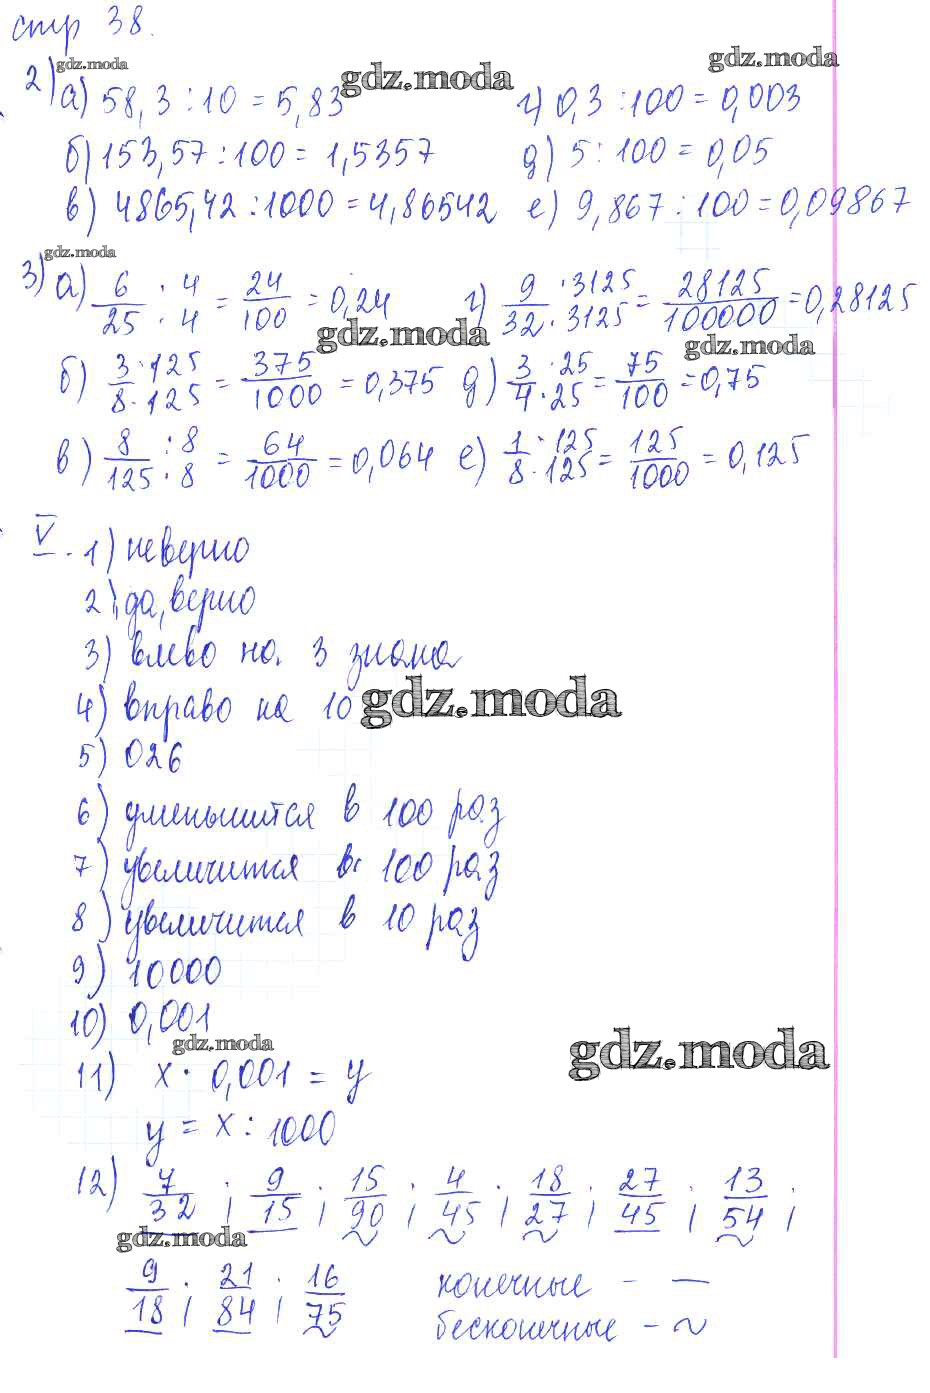 стр 38.
gdz.moda gdz.moda gdz.moda
2) а) 58,3 : 10 = 5,83 г) 0,3 : 100 = 0,003
б) 153,57 : 100 = 1,5357 д) 5 : 100 = 0,05
в) 4865,42 : 1000 = 4,86542 е) 9,867 : 100 = 0,09867
gdz.moda
3) а) 6/25 · 4/4 = 24/100 = 0,24 г) 9/32 · 3125/3125 = 28125/100000 = 0,28125
gdz.moda gdz.moda
б) 3·125/8·125 = 375/1000 = 0,375 д) 3·25/4·25 = 75/100 = 0,75
в) 8:8/125:8 = 64/1000 = 0,064 е) 1·125/8·125 = 125/1000 = 0,125
V. 1) неверно
2) да, верно
3) влево на 3 знака
4) вправо на 10 gdz.moda
5) 026
6) уменьшится в 100 раз
7) увеличится в 100 раз
8) увеличится в 10 раз
9) 10000
10) 0,001
gdz.moda gdz.moda
11) x · 0,001 = y
y = x : 1000
12) 7/32 ; 9/15 ; 15/90 ; 4/45 ; 18/27 ; 27/45 ; 13/54 ;
gdz.moda
9/18 ; 21/84 ; 16/75 конечные - —
бесконечные - ~